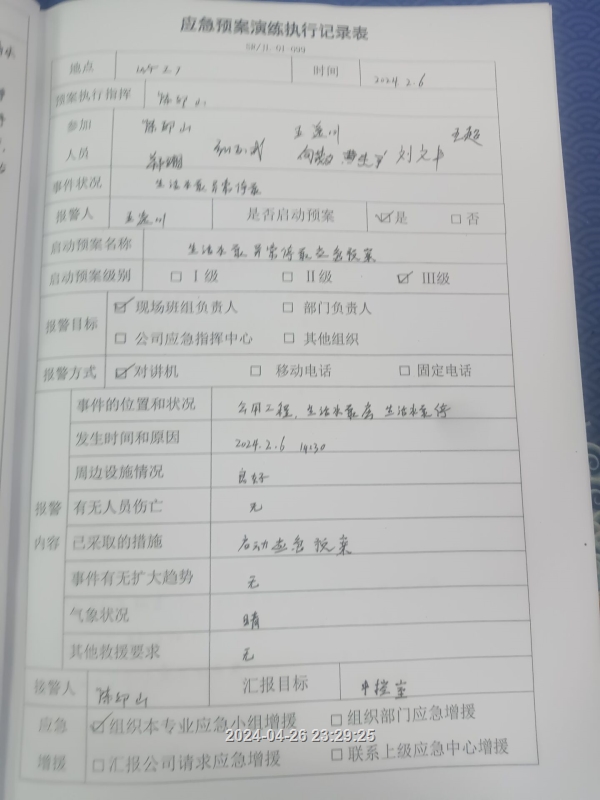 应急预案演练执行记录表
SB/JL-01-099
地点 时间 2024.2.6
预案执行指挥 陈卯山
参加 陈卯山 王莲川 王超
人员 刘文丰
事件状况 生活水泵异常停泵
报警人 王莲川 是否启动预案 ☑是 □否
启动预案名称 生活水泵异常停泵应急预案
启动预案级别 □ I级 □ II级 ☑ III级
报警目标 ☑现场班组负责人 □ 部门负责人
□ 公司应急指挥中心 □ 其他组织
报警方式 ☑对讲机 □ 移动电话 □ 固定电话
事件的位置和状况 公用工程,生活水泵房 生活水泵停
发生时间和原因 2024.2.6 14:30
周边设施情况 良好
报警 有无人员伤亡 无
内容 已采取的措施 启动应急预案
事件有无扩大趋势 无
气象状况 晴
其他救援要求 无
接警人 陈卯山 汇报目标 中控室
应急 ☑组织本专业应急小组增援 □组织部门应急增援
2024-04-26 23:29:25
增援 □汇报公司请求应急增援 □联系上级应急中心增援